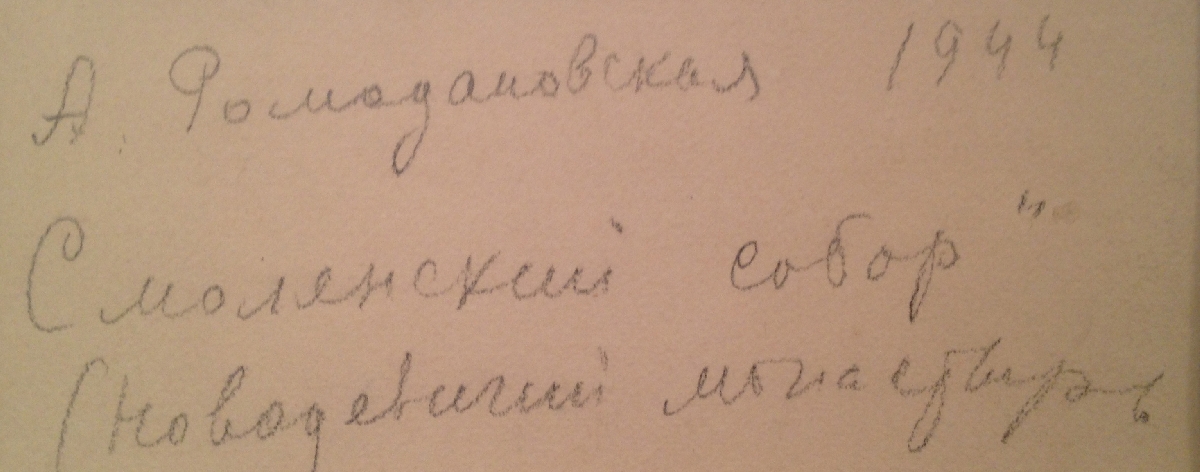 А. Ромодановская 1944
Смоленский собор"
(Новодевичий монастырь